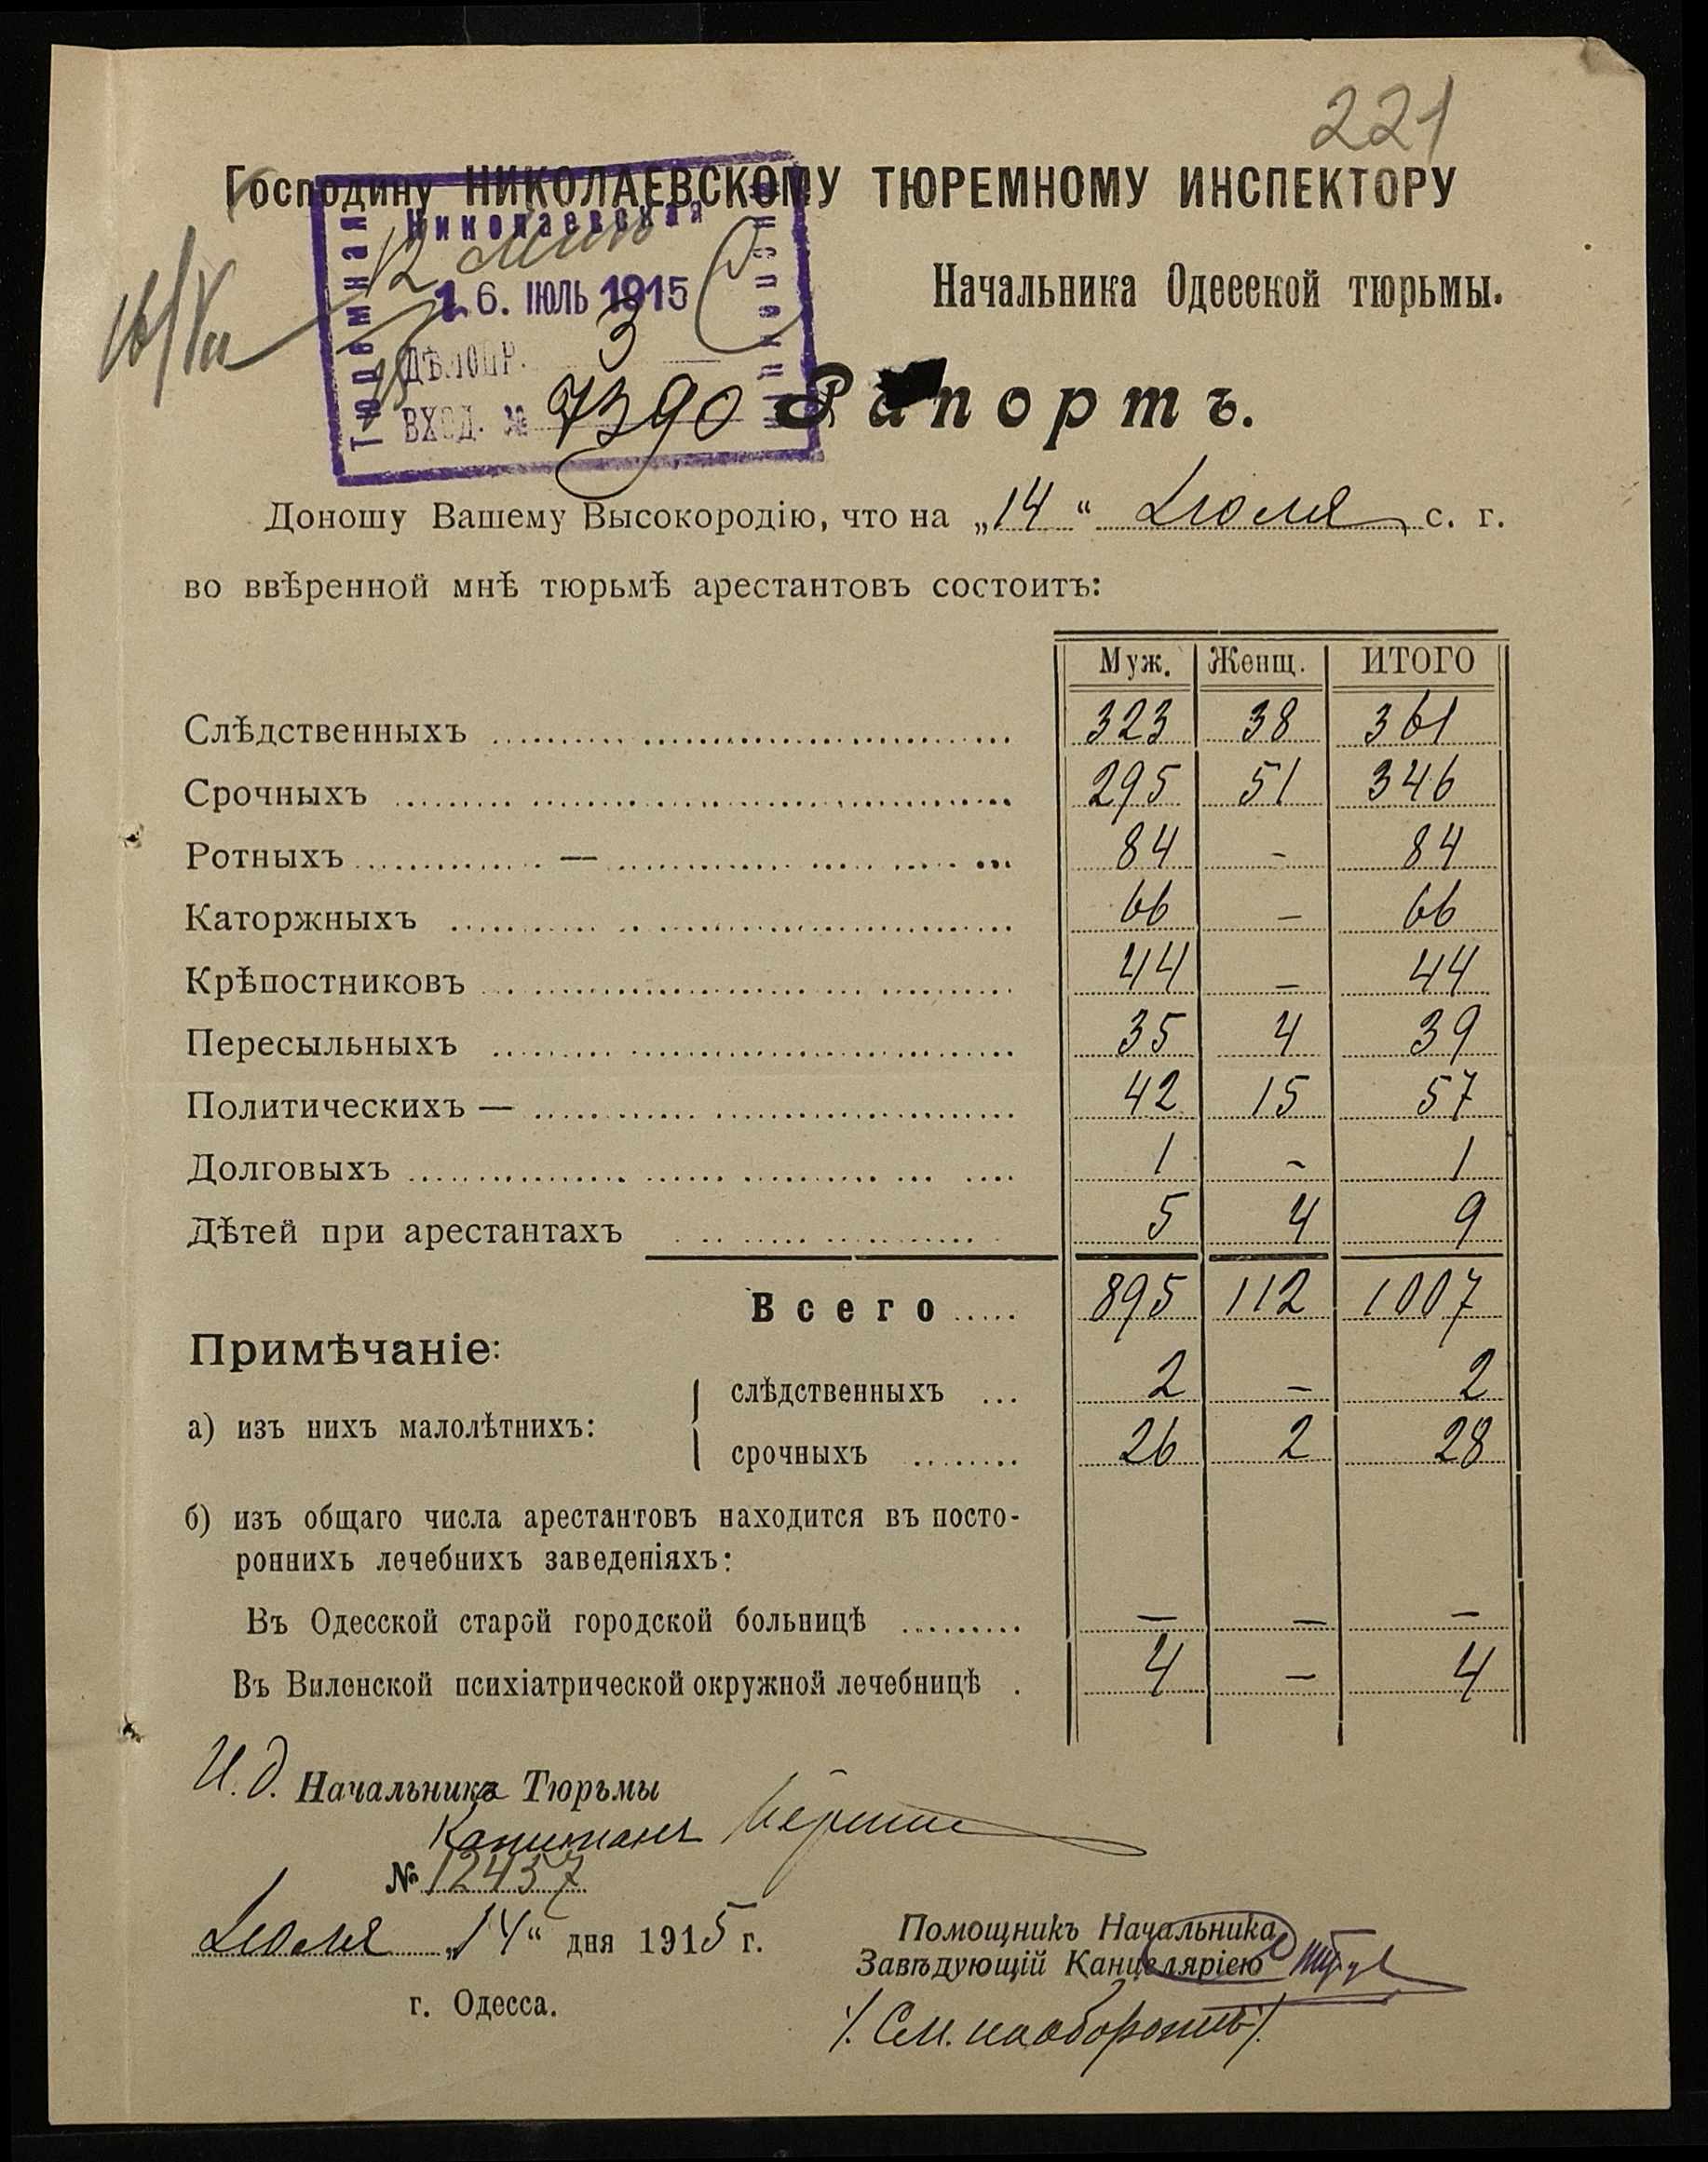 221
Господину НИКОЛАЕВСКОМУ ТЮРЕМНОМУ ИНСПЕКТОРУ
Николаевская
Тюремная
Инспекція
16. ІЮЛЬ 1915
ДѢЛОПР. 3
ВХОД. № 7390
16/VII
Начальника Одесской тюрьмы.
Рапортъ.
Доношу Вашему Высокородію, что на „14“ Іюля с. г.
во ввѣренной мнѣ тюрьмѣ арестантовъ состоитъ:
Муж. Женщ. ИТОГО
Слѣдственныхъ 323 38 361
Срочныхъ 295 51 346
Ротныхъ — 84 - 84
Каторжныхъ 66 — 66
Крѣпостниковъ 44 — 44
Пересыльныхъ 35 4 39
Политическихъ — 42 15 57
Долговыхъ 1 - 1
Дѣтей при арестантахъ 5 4 9
Всего 895 112 1007
Примѣчаніе:
а) изъ нихъ малолѣтнихъ:
слѣдственныхъ 2 — 2
срочныхъ 26 2 28
б) изъ общаго числа арестантовъ находится въ посто-
роннихъ лечебнихъ заведеніяхъ:
Въ Одесской старой городской больницѣ — — —
Въ Виленской психіатрической окружной лечебницѣ 4 — 4
И. д. Начальника Тюрьмы
Капитанъ
№ 12437
Іюля „14“ дня 1915 г.
г. Одесса.
Помощникъ Начальника
Завѣдующій Канцеляріею
/. См. на оборотѣ /.